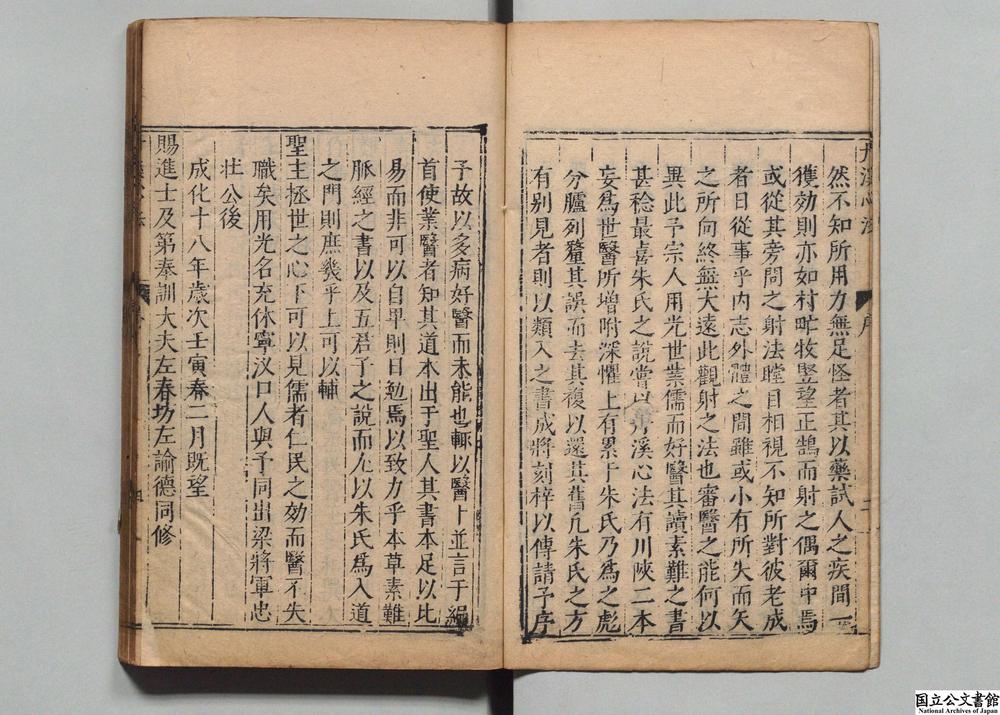 然不知所用力無足怪者其以藥試人之疾間一
獲効則亦如村甿牧竪望正鵠而射之偶爾中焉
或從其旁問之射法瞠目相視不知所對彼老成
者日從事乎內志外體之間雖或小有所失而矢
之所向終無大遠此觀射之法也審醫之能何以
異此予宗人用光世業儒而好醫其讀素難之書
甚稔最喜朱氏之說嘗以丹溪心法有川陝二本
妄爲世醫所增附深懼上有累于朱氏乃爲之彪
分臚列釐其誤而去其複以還其舊凡朱氏之方
有別見者則以類入之書成將刻梓以傳請予序
予故以多病好醫而未能也輒以醫卜並言于編
首使業醫者知其道本出于聖人其書本足以比
易而非可以自卑則日勉焉以致力乎本草素難
脉經之書以及五君子之說而尤以朱氏爲入道
之門則庶幾乎上可以輔
聖主拯世之心下可以見儒者仁民之効而醫不失
職矣用光名充休寧汊口人與予同出梁將軍忠
壯公後
成化十八年歲次壬寅春二月既望
賜進士及第奉訓大夫左春坊左諭德同修
丹溪心法
序
国立公文書館
National Archives of Japan